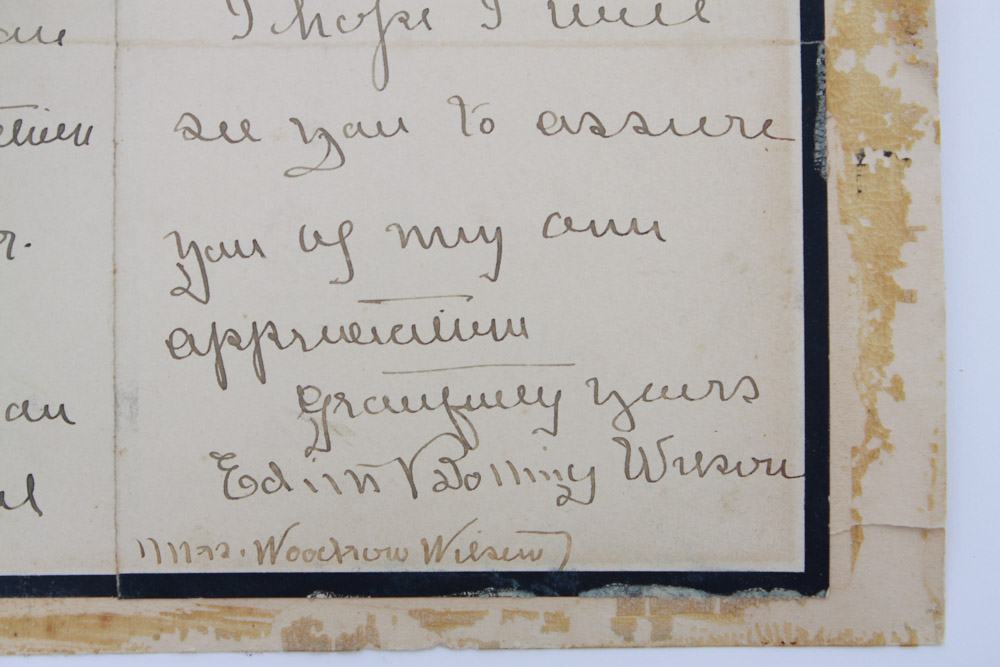 I hope I will
see you to assure
you of my own
appreciation
gratefully yours
Edith Bolling Wilson
Mrs. Woodrow Wilson)